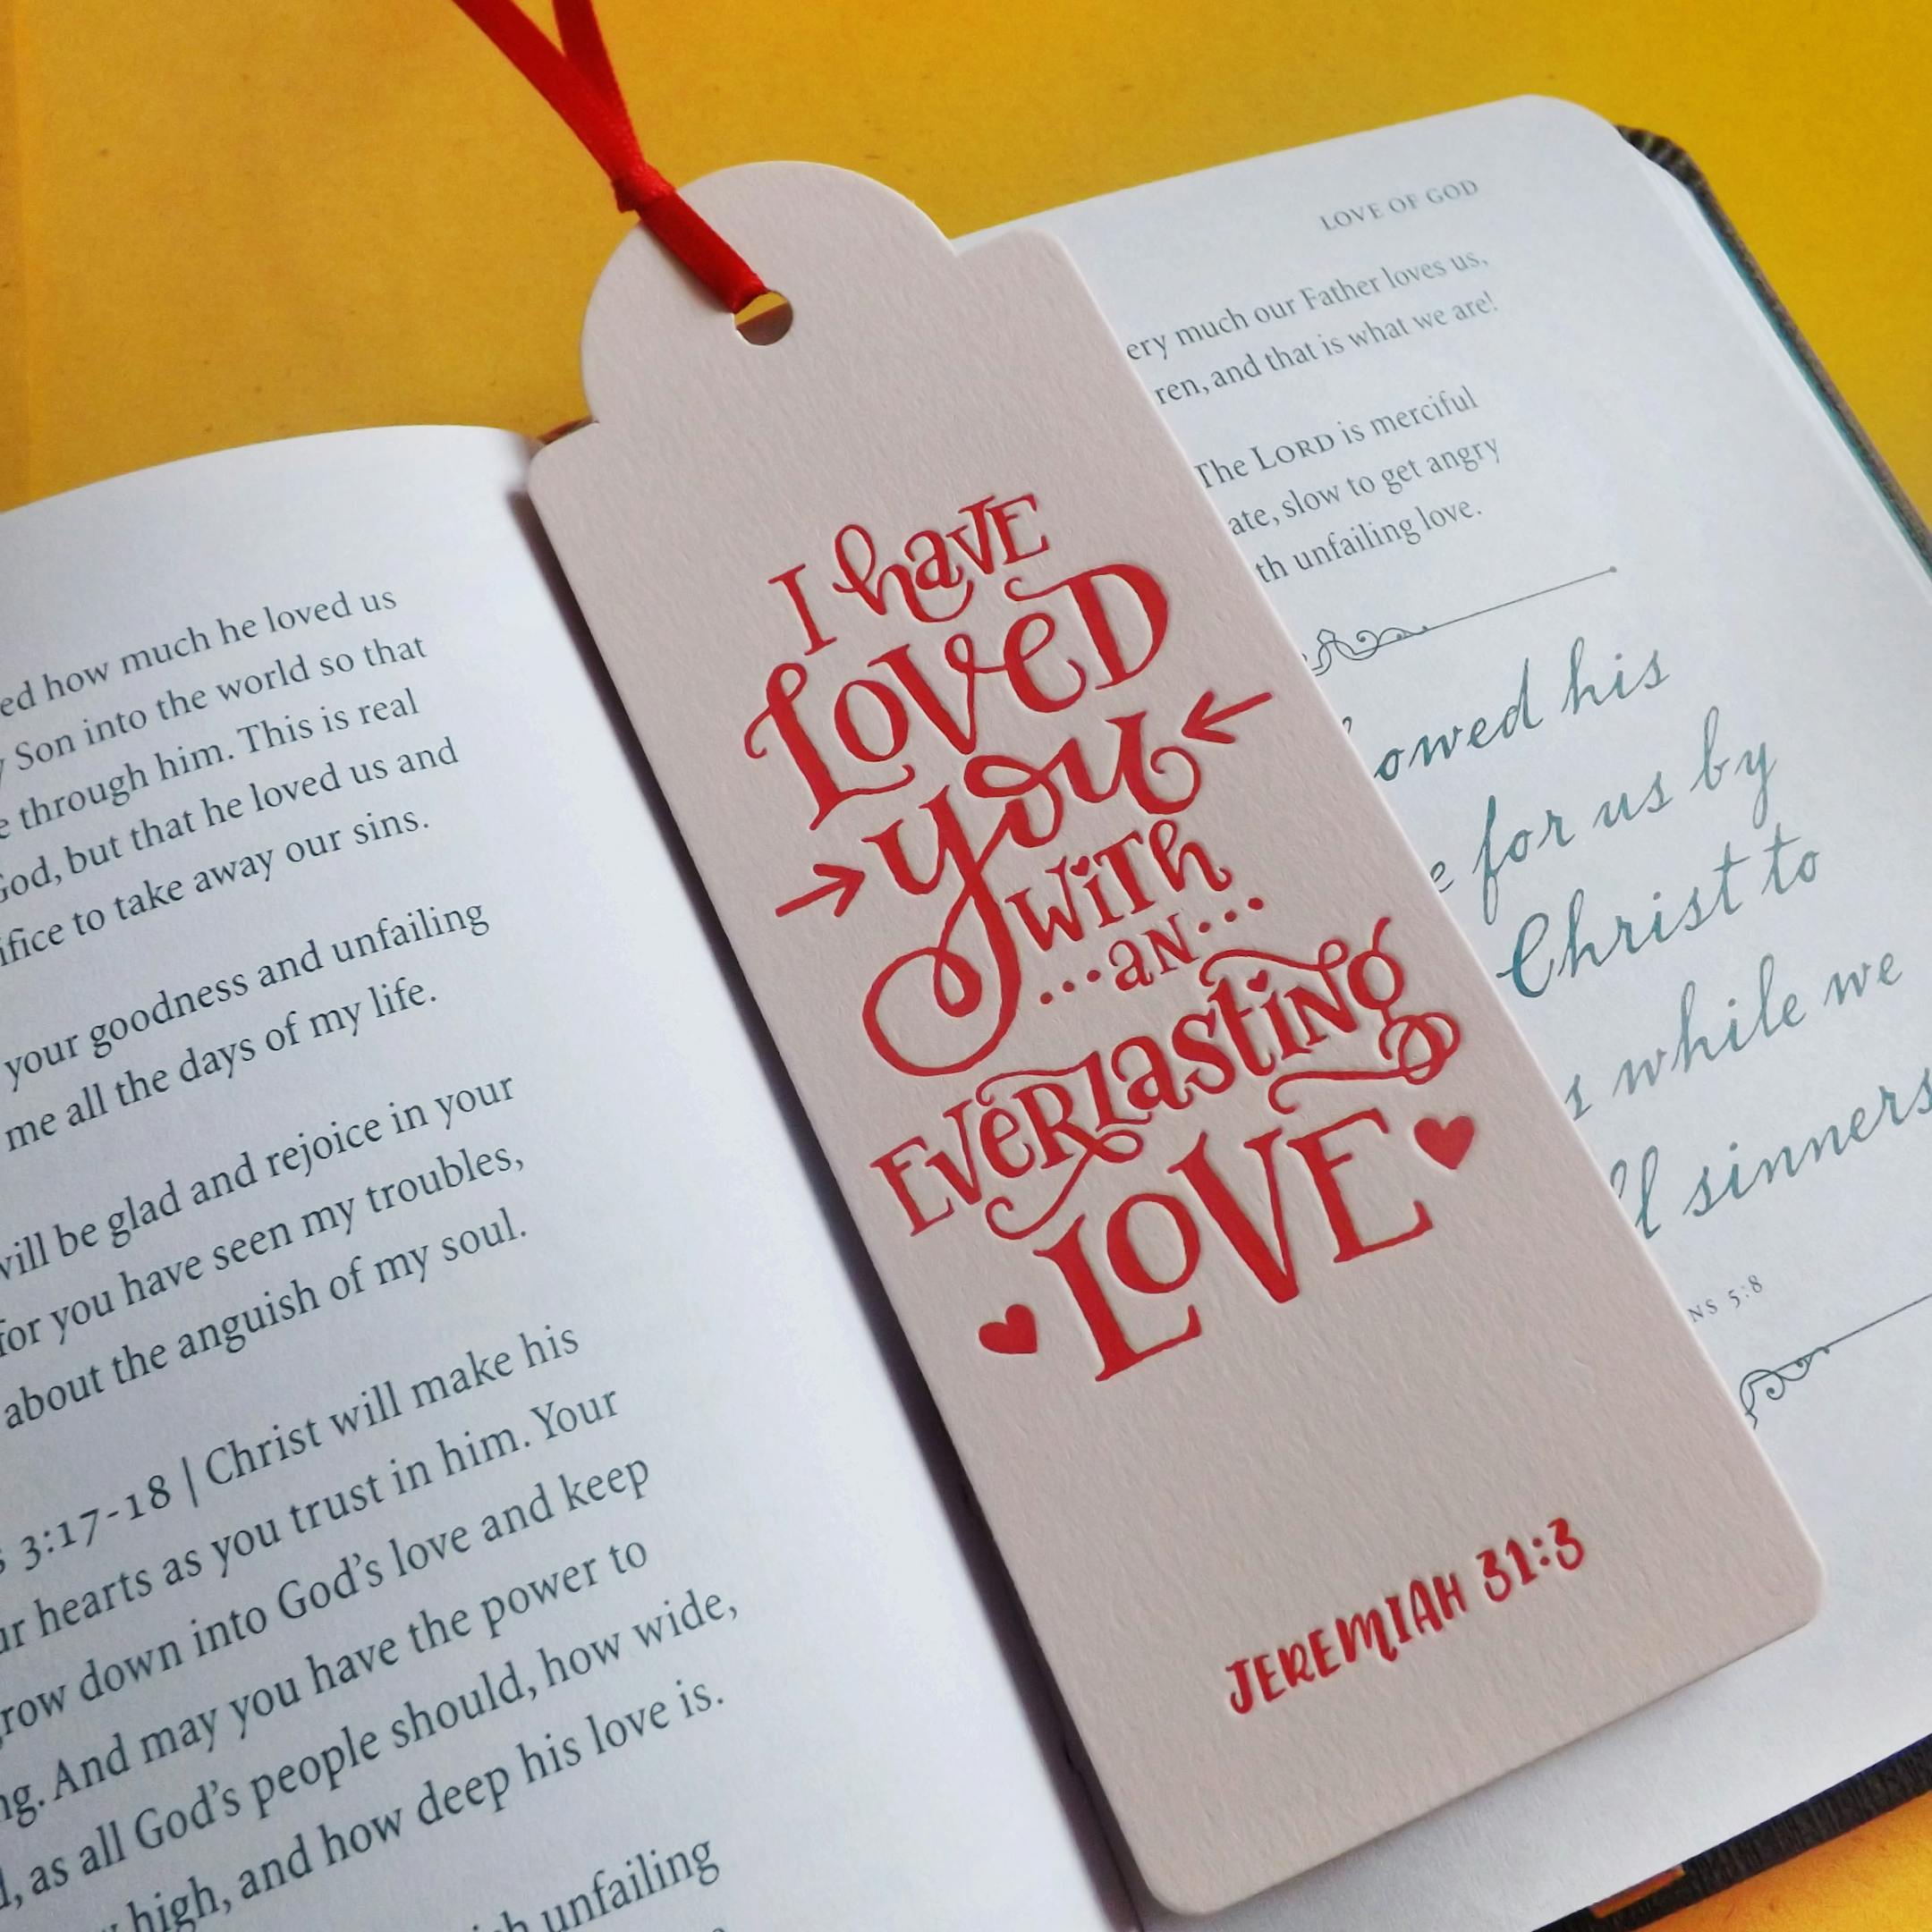 ed how much he loved us
Son into the world so that
through him. This is real
God, but that he loved us and
ifice to take away our sins.
your goodness and unfailing
me all the days of my life.
will be glad and rejoice in your
for you have seen my troubles,
about the anguish of my soul.
3:17-18 | Christ will make his
ur hearts as you trust in him. Your
row down into God's love and keep
ng. And may you have the power to
as all God's people should, how wide,
high, and how deep his love is.
unfailing
I have
Loved
→you←
with
...an...
Everlasting
Love
Jeremiah 31:3
LOVE OF GOD
ery much our Father loves us,
ren, and that is what we are!
The LORD is merciful
ate, slow to get angry
th unfailing love.
owed his
e for us by
Christ to
s while we
ll sinners
NS 5:8